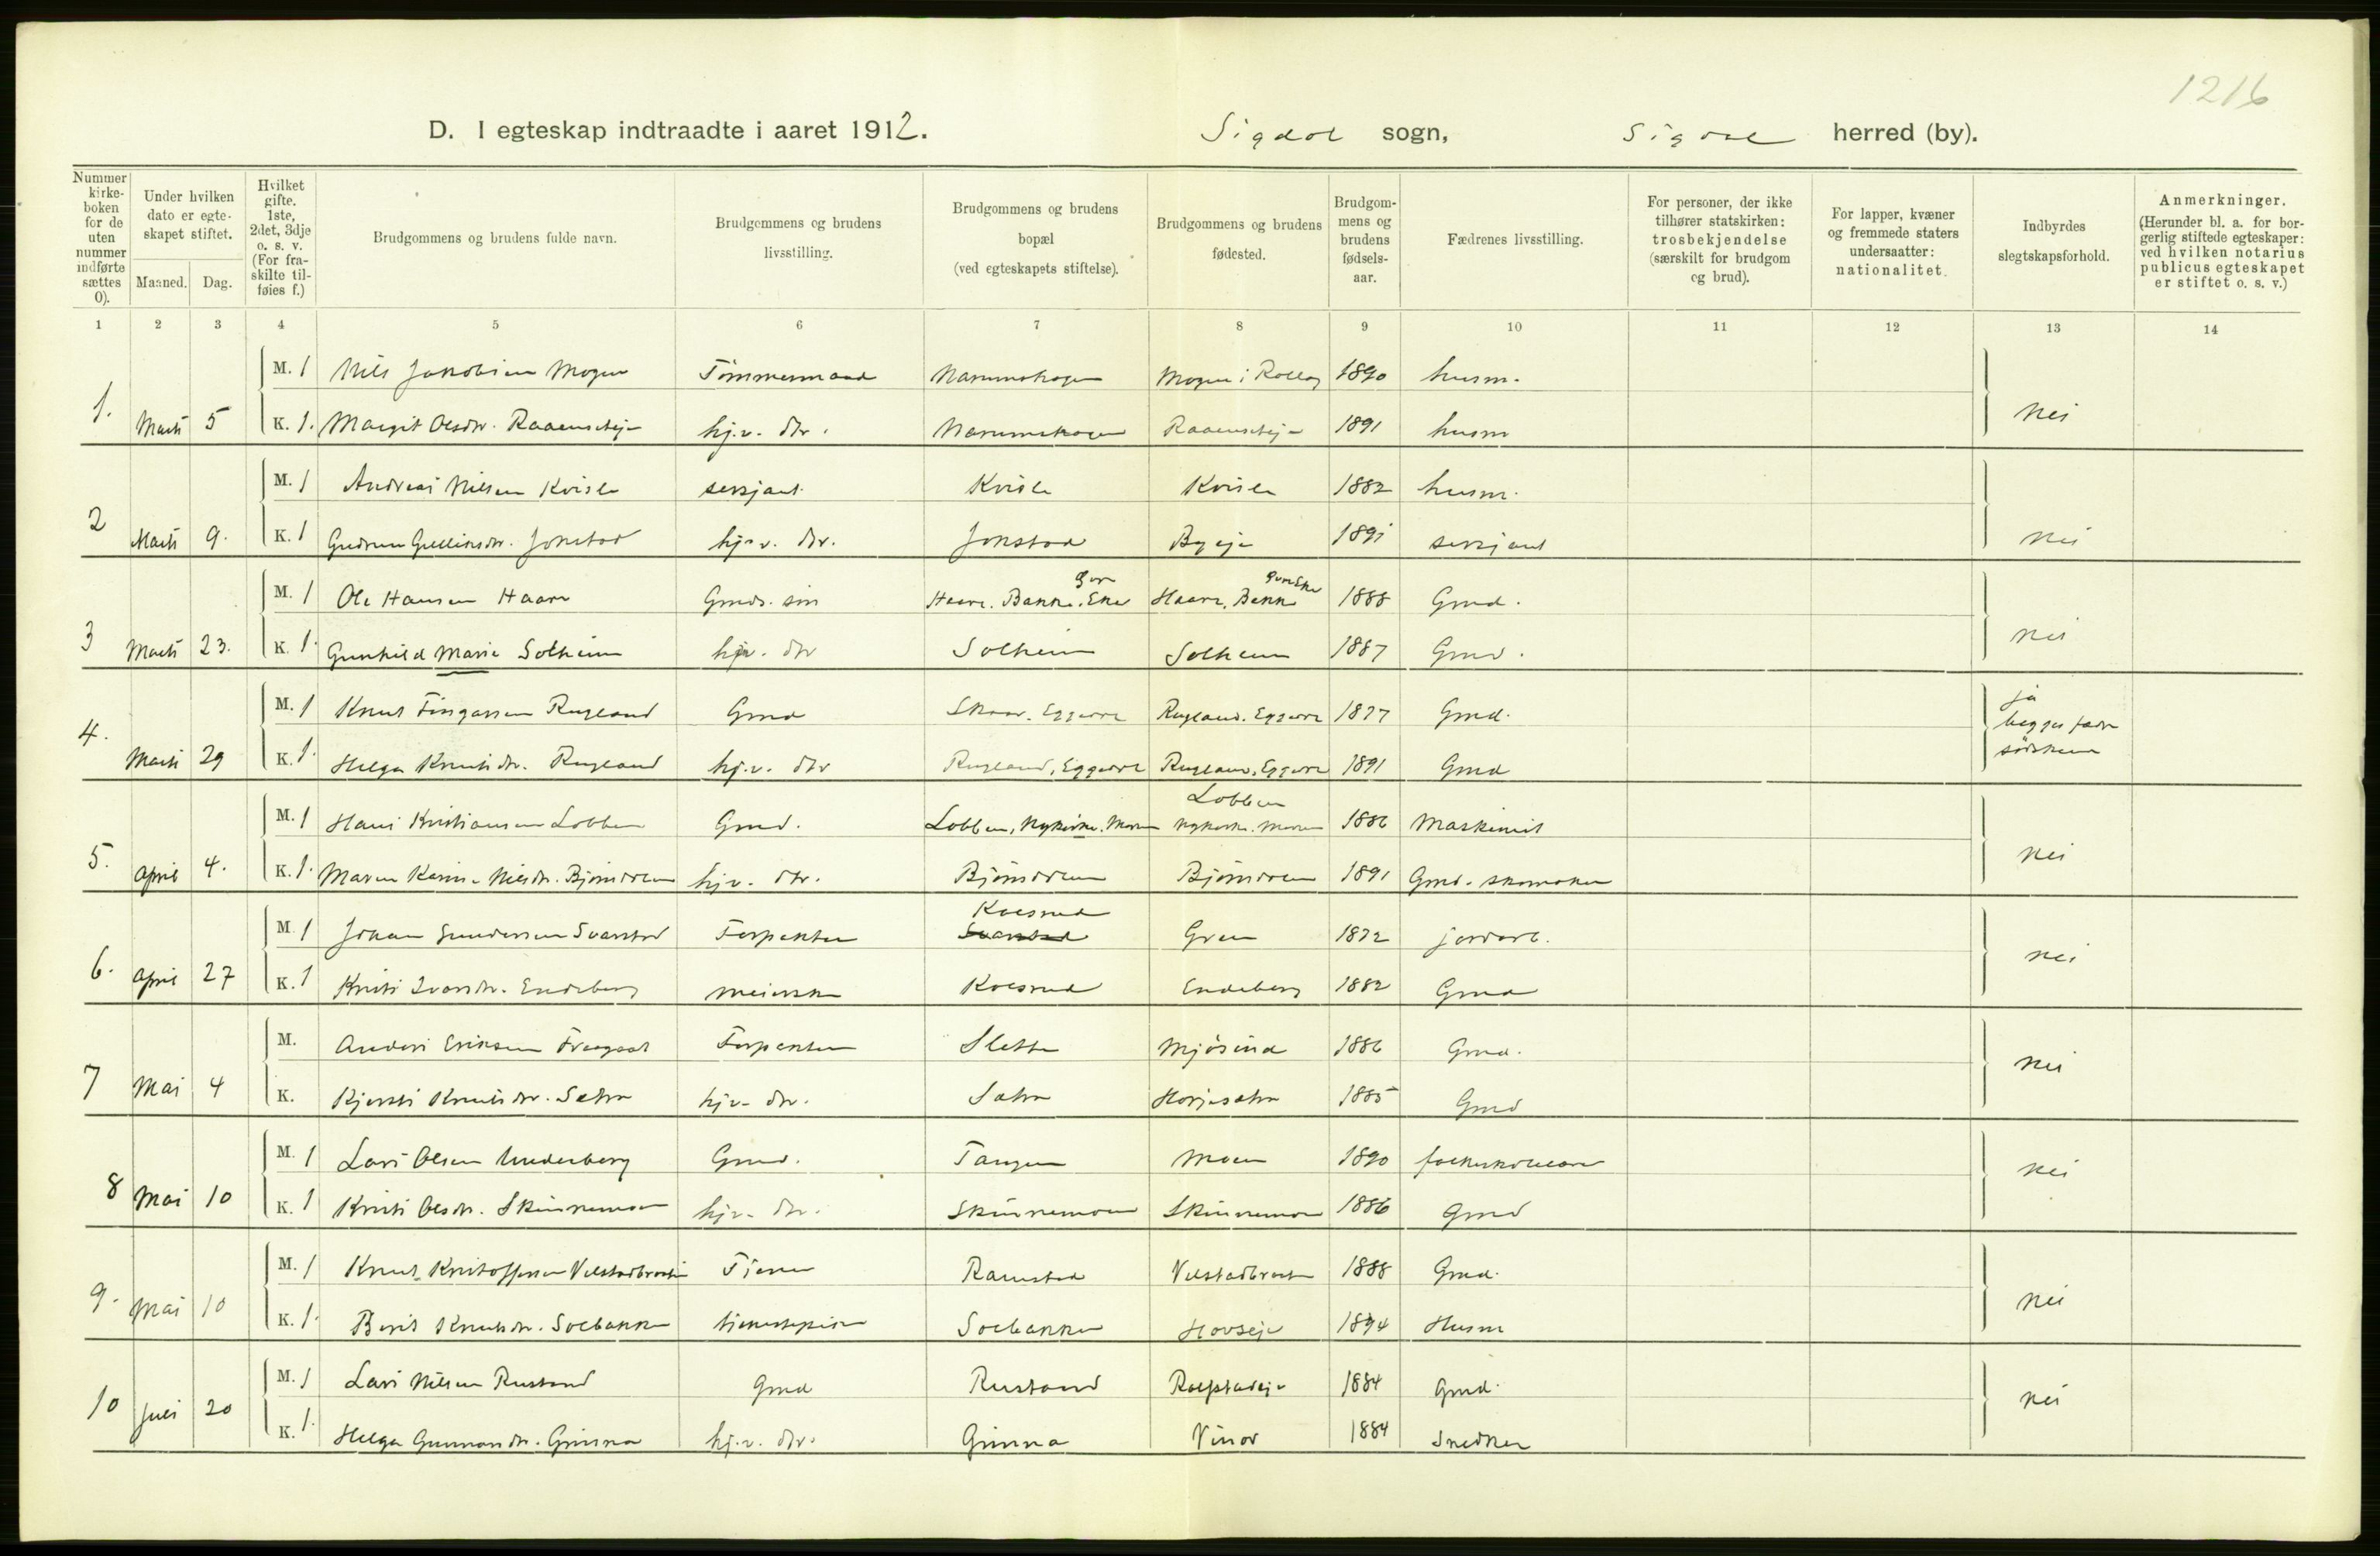 1216
D. I egteskap indtraadte i aaret 1912. Sigdal sogn, Sigdal herred (by).
Nummer kirke-boken for de uten nummer indførte sættes 0).
Under hvilken dato er egte-skapet stiftet.
Maaned. Dag.
Hvilket gifte. 1ste, 2det, 3dje o. s. v. (For fra-skilte til-føies f.)
Brudgommens og brudens fulde navn.
Brudgommens og brudens livsstilling.
Brudgommens og brudens bopæl (ved egteskapets stiftelse).
Brudgommens og brudens fødested.
Brudgom-mens og brudens fødsels-aar.
Fædrenes livsstilling.
For personer, der ikke tilhører statskirken: trosbekjendelse (særskilt for brudgom og brud).
For lapper, kvæner og fremmede staters undersaatter: nationalitet.
Indbyrdes slegtskapsforhold.
Anmerkninger. (Herunder bl. a. for bor-gerlig stiftede egteskaper: ved hvilken notarius publicus egteskapet er stiftet o. s. v.)
1 2 3 4 5 6 7 8 9 10 11 12 13 14
M. 1 Nils Jakobsen Mogen Tømmermand Narumskogen Mogen i Rollag 1890 husm.
1. Marts 5 K. 1. Margit Olsdtr. Raaenseje hj.v. dtr. Narumskogen Raaenseje 1891 husm nei
M. 1 Andreas Nilsen Kvisle sersjant Kvisle Kvisle 1882 husm.
2 Marts 9. K. 1 Gudrun Gulliksdtr. Jonstad hj.v. dtr. Jonstad Byeje 1891 sersjant nei
M. 1 Ole Hansen Haare Gmds. søn Haare. Bakke. Eker Haare, Bakke 1888 Gmd.
3 Marts 23. K. 1. Gunhild Marie Solheim hjv. dtr Solheim Solheim 1887 Gmd. nei
M. 1 Knut Fingarsen Rugland Gmd Skaar. Eggedal Rugland. Eggedal 1877 Gmd. ja begges fædre
4. Marts 29 K. 1. Helga Knutsdtr. Rugland hj.v. dtr Rugland, Eggedal Rugland, Eggedal 1891 Gmd søskenen
M. 1 Hans Kristiansen Lobben Gmd. Lobben, Nykirke. Modum Lobben Nykirke. Modum 1886 Maskinist
5. April 4. K. 1. Maren Karine Nilsdtr. Bjørndalen hjv. dtr. Bjørndalen Bjørndalen 1891 Gmd. skomaker nei
M. 1 Johan Gundersen Svarstad Forpakter Kolsrud Svarstad Gren 1872 jordarb.
6. April 27 K. 1 Kristi Ivarsdtr. Endeberg meierske Kolsrud Endeberg 1882 Gmd nei
M. Anders Eriksen Forpakter Slette Mjøsund 1886 Gmd.
7 Mai 4 K. Kjersti Knutsdtr. Sætra hjv. dtr. Sætra Horjesætra 1885 Gmd nei
M. 1 Lars Olsen Underberg Gmd. Tangen Moen 1890 folkeskolelærer
8 Mai 10 K. 1 Kristi Olsdtr. Skinnemoen hjv. dtr. Skinnemoen Skinnemoen 1886 Gmd nei
M. 1 Knut Kristoffersen Velstadbraaten Tjener Ramstad Velstadbraaten 1888 Gmd.
9. Mai 10 K. 1. Berit Knutsdtr. Solbakken tjenestepike Solbakken Hovseje 1894 Husm nei
M. 1 Lars Nilsen Rustand Gmd Rustand Rolfstadeje 1884 Gmd.
10 Juli 20 K. 1. Helga Gunnarsdtr. Grinna hj.v. dtr. Grinna Vinor 1884 Snedker nei